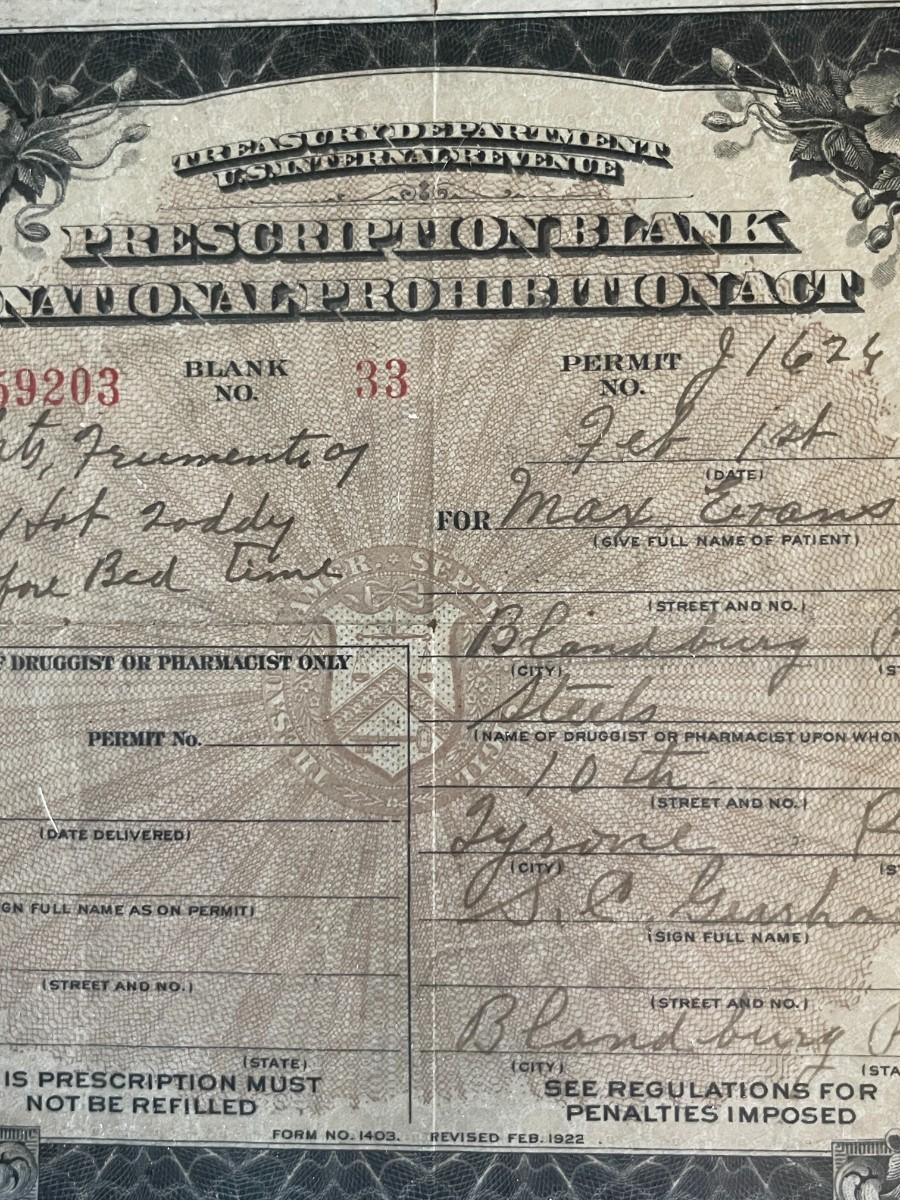 TREASURY DEPARTMENT
U.S. INTERNAL REVENUE
PRESCRIPTION BLANK
NATIONAL PROHIBITION ACT
59203 BLANK NO. 33 PERMIT NO. J1624
Feb 1st
(DATE)
Frumenti
Hot Toddy
FOR Max Evans
(GIVE FULL NAME OF PATIENT)
Bed time
(STREET AND NO.)
AMER. SEPT
THESAUR
Blandburg P
(CITY) (ST
F DRUGGIST OR PHARMACIST ONLY
Steels
PERMIT No.
(NAME OF DRUGGIST OR PHARMACIST UPON WHOM
10th
(STREET AND NO.)
(DATE DELIVERED)
Tyrone P
(CITY) (ST
GN FULL NAME AS ON PERMIT)
S. C.
(SIGN FULL NAME)
(STREET AND NO.)
(STREET AND NO.)
Blandburg P
(STATE)
(CITY) (STA
IS PRESCRIPTION MUST
NOT BE REFILLED
SEE REGULATIONS FOR
PENALTIES IMPOSED
FORM NO. 1403. REVISED FEB. 1922